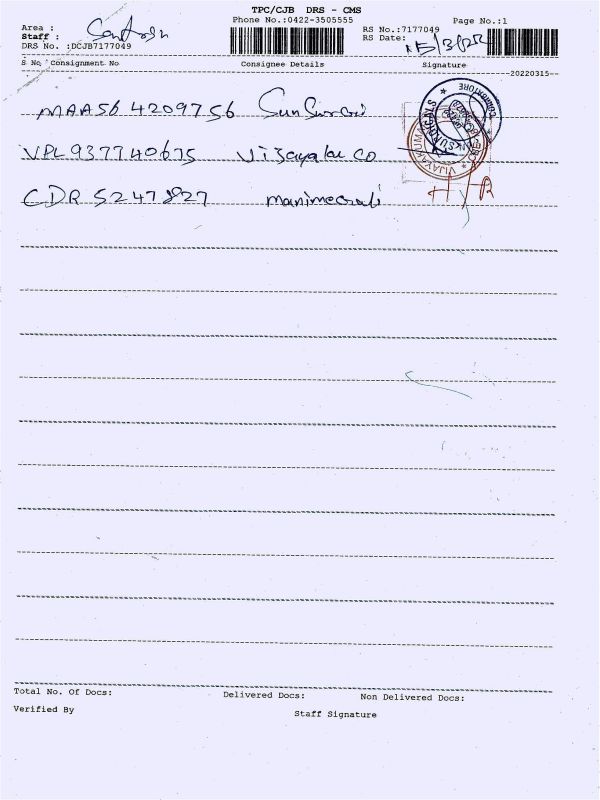 TPC/CJB DRS - CMS
Phone No.:0422-3505555
Page No.:1
Area :
Staff :
RS No.:7177049
RS Date: 15/3/22
DRS No. :DCJB7177049
S No Consignment No Consignee Details Signature
20220315
MAA564209756
VPL937740675 Vijayalau CO
CDR 5247827 manimegali
COIMBATORE
VIJAYAKUMAR
Total No. Of Docs: Delivered Docs: Non Delivered Docs:
Verified By Staff Signature